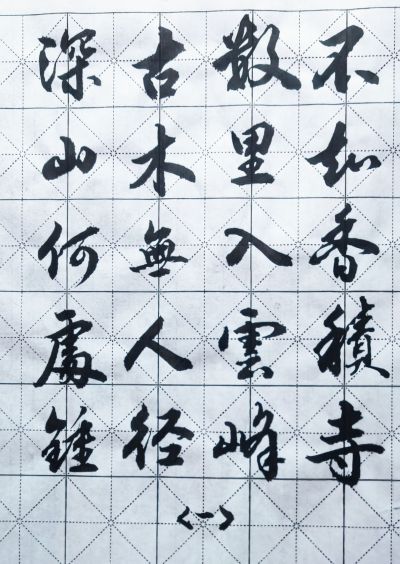 不知香積寺
數里入雲峰
古木無人径
深山何處鍾
<一>